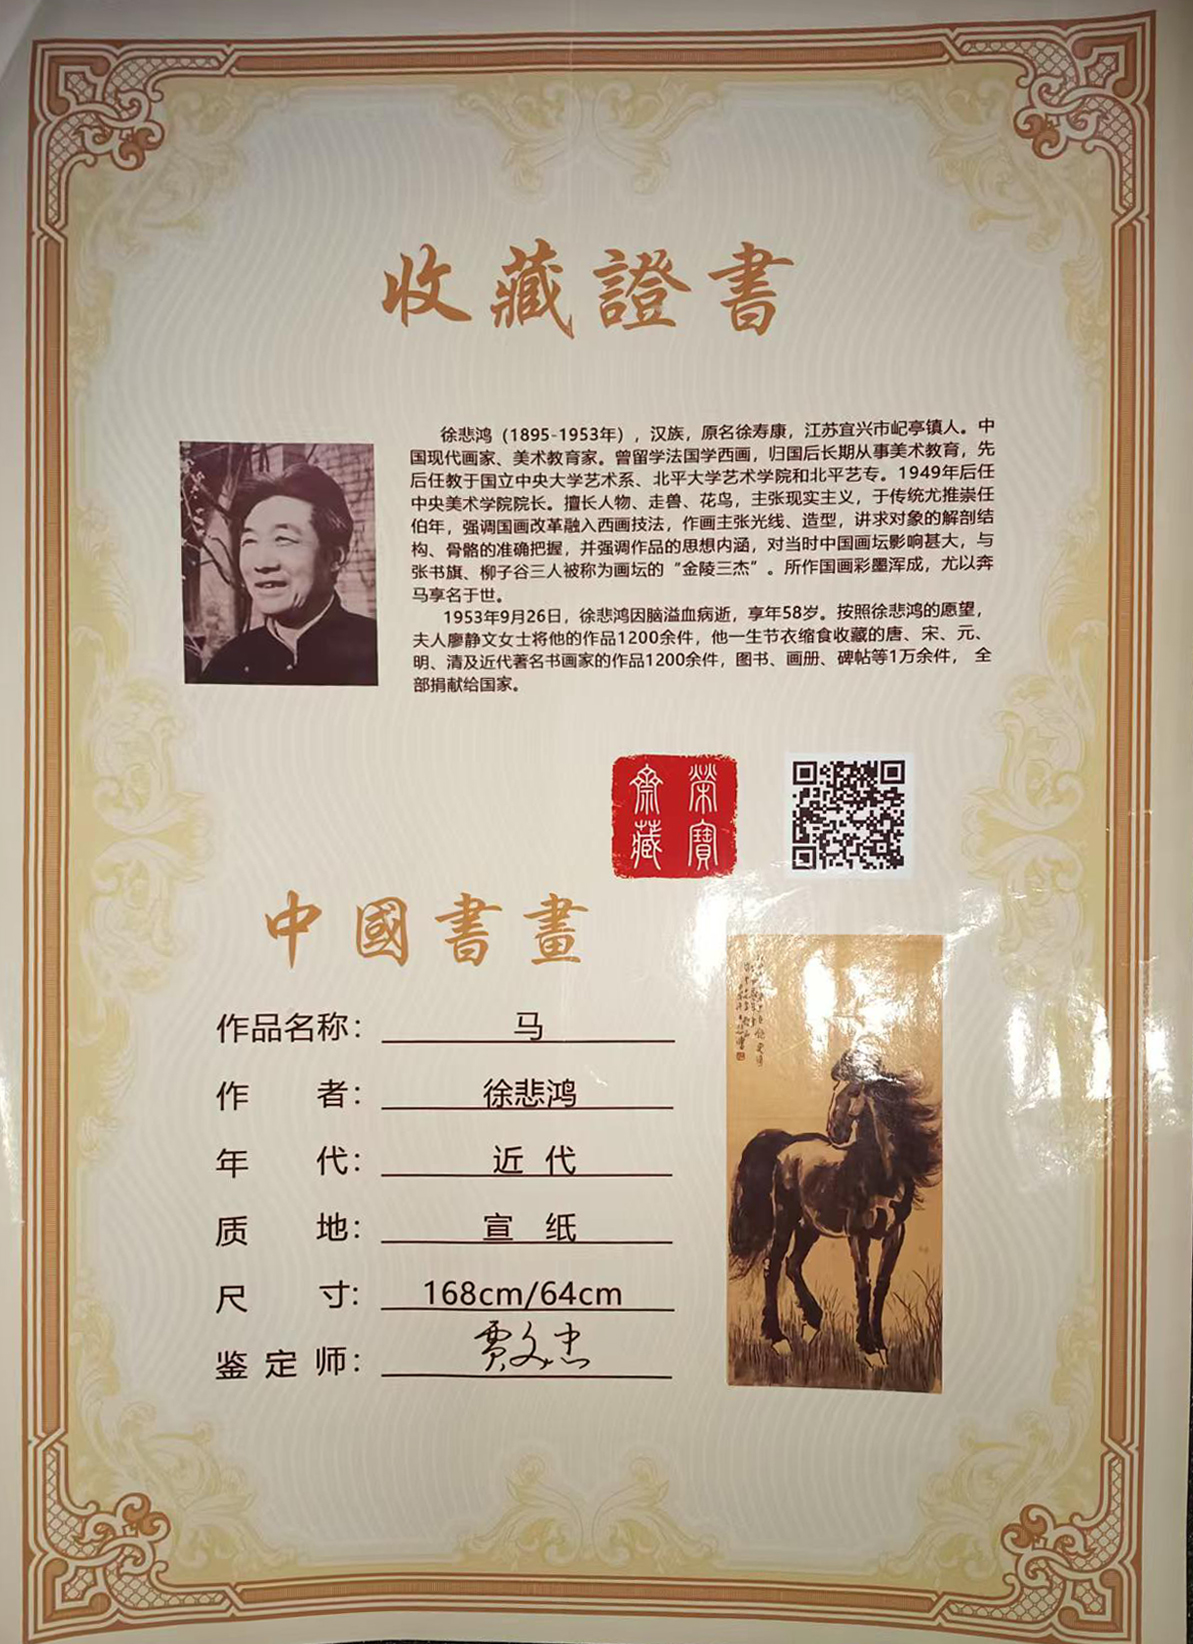 收藏證書
徐悲鸿（1895-1953年），汉族，原名徐寿康，江苏宜兴市屺亭镇人。中
国现代画家、美术教育家。曾留学法国学西画，归国后长期从事美术教育，先
后任教于国立中央大学艺术系、北平大学艺术学院和北平艺专。1949年后任
中央美术学院院长。擅长人物、走兽、花鸟，主张现实主义，于传统尤推崇任
伯年，强调国画改革融入西画技法，作画主张光线、造型，讲求对象的解剖结
构、骨骼的准确把握，并强调作品的思想内涵，对当时中国画坛影响甚大，与
张书旗、柳子谷三人被称为画坛的“金陵三杰”。所作国画彩墨浑成，尤以奔
马享名于世。
1953年9月26日，徐悲鸿因脑溢血病逝，享年58岁。按照徐悲鸿的愿望，
夫人廖静文女士将他的作品1200余件，他一生节衣缩食收藏的唐、宋、元、
明、清及近代著名书画家的作品1200余件，图书、画册、碑帖等1万余件， 全
部捐献给国家。
榮寶
齋藏
中國書畫
作品名称： 马
作者： 徐悲鸿
年代： 近代
质地： 宣纸
尺寸: 168cm/64cm
鉴定师： 贾文忠